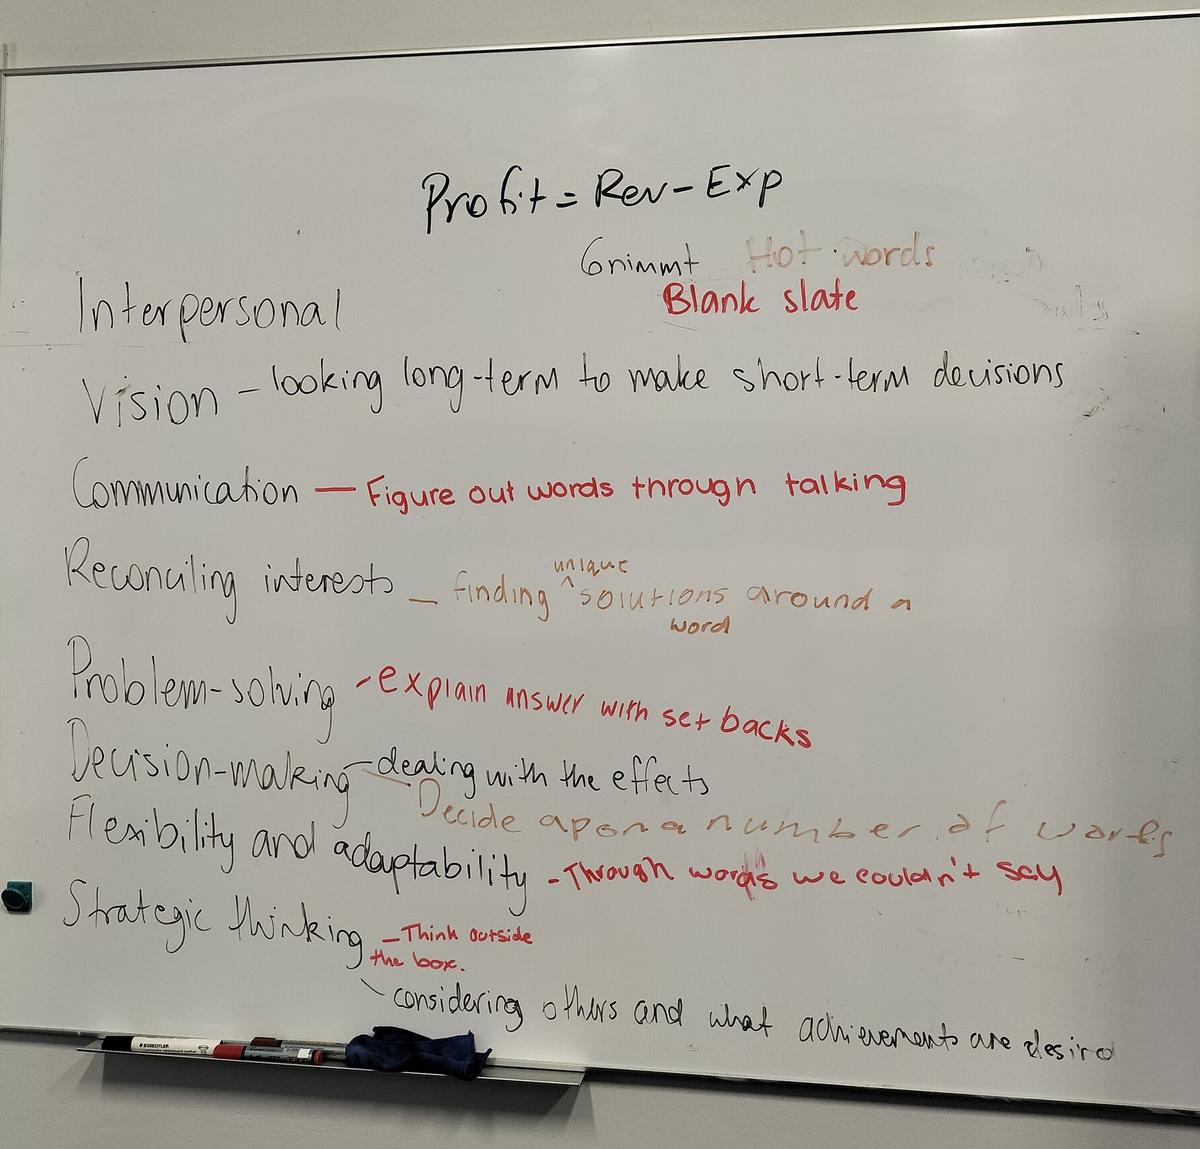 Profit = Rev - Exp
6nimmt Hot words
Blank slate
Interpersonal
Vision - looking long-term to make short-term decisions
Communication - Figure out words through talking
Reconciling interests - finding unique solutions around a
word
Problem-solving - explain answer with set backs
Decision-making - dealing with the effects
- Decide apon a number of words
Flexibility and adaptability - Through words we couldn't say
Strategic thinking - Think outside
the box.
- considering others and what achievements are desired
STAEDTLER